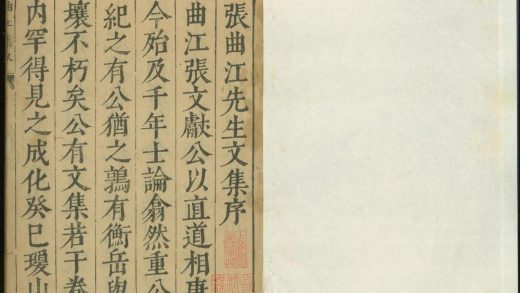 張曲江先生文集序
曲江張文獻公以直道相唐
今殆及千年士論翕然重公
紀之有公猶之鶉有衡岳與
壤不朽矣公有文集若干卷
内罕得見之成化癸巳瓊山